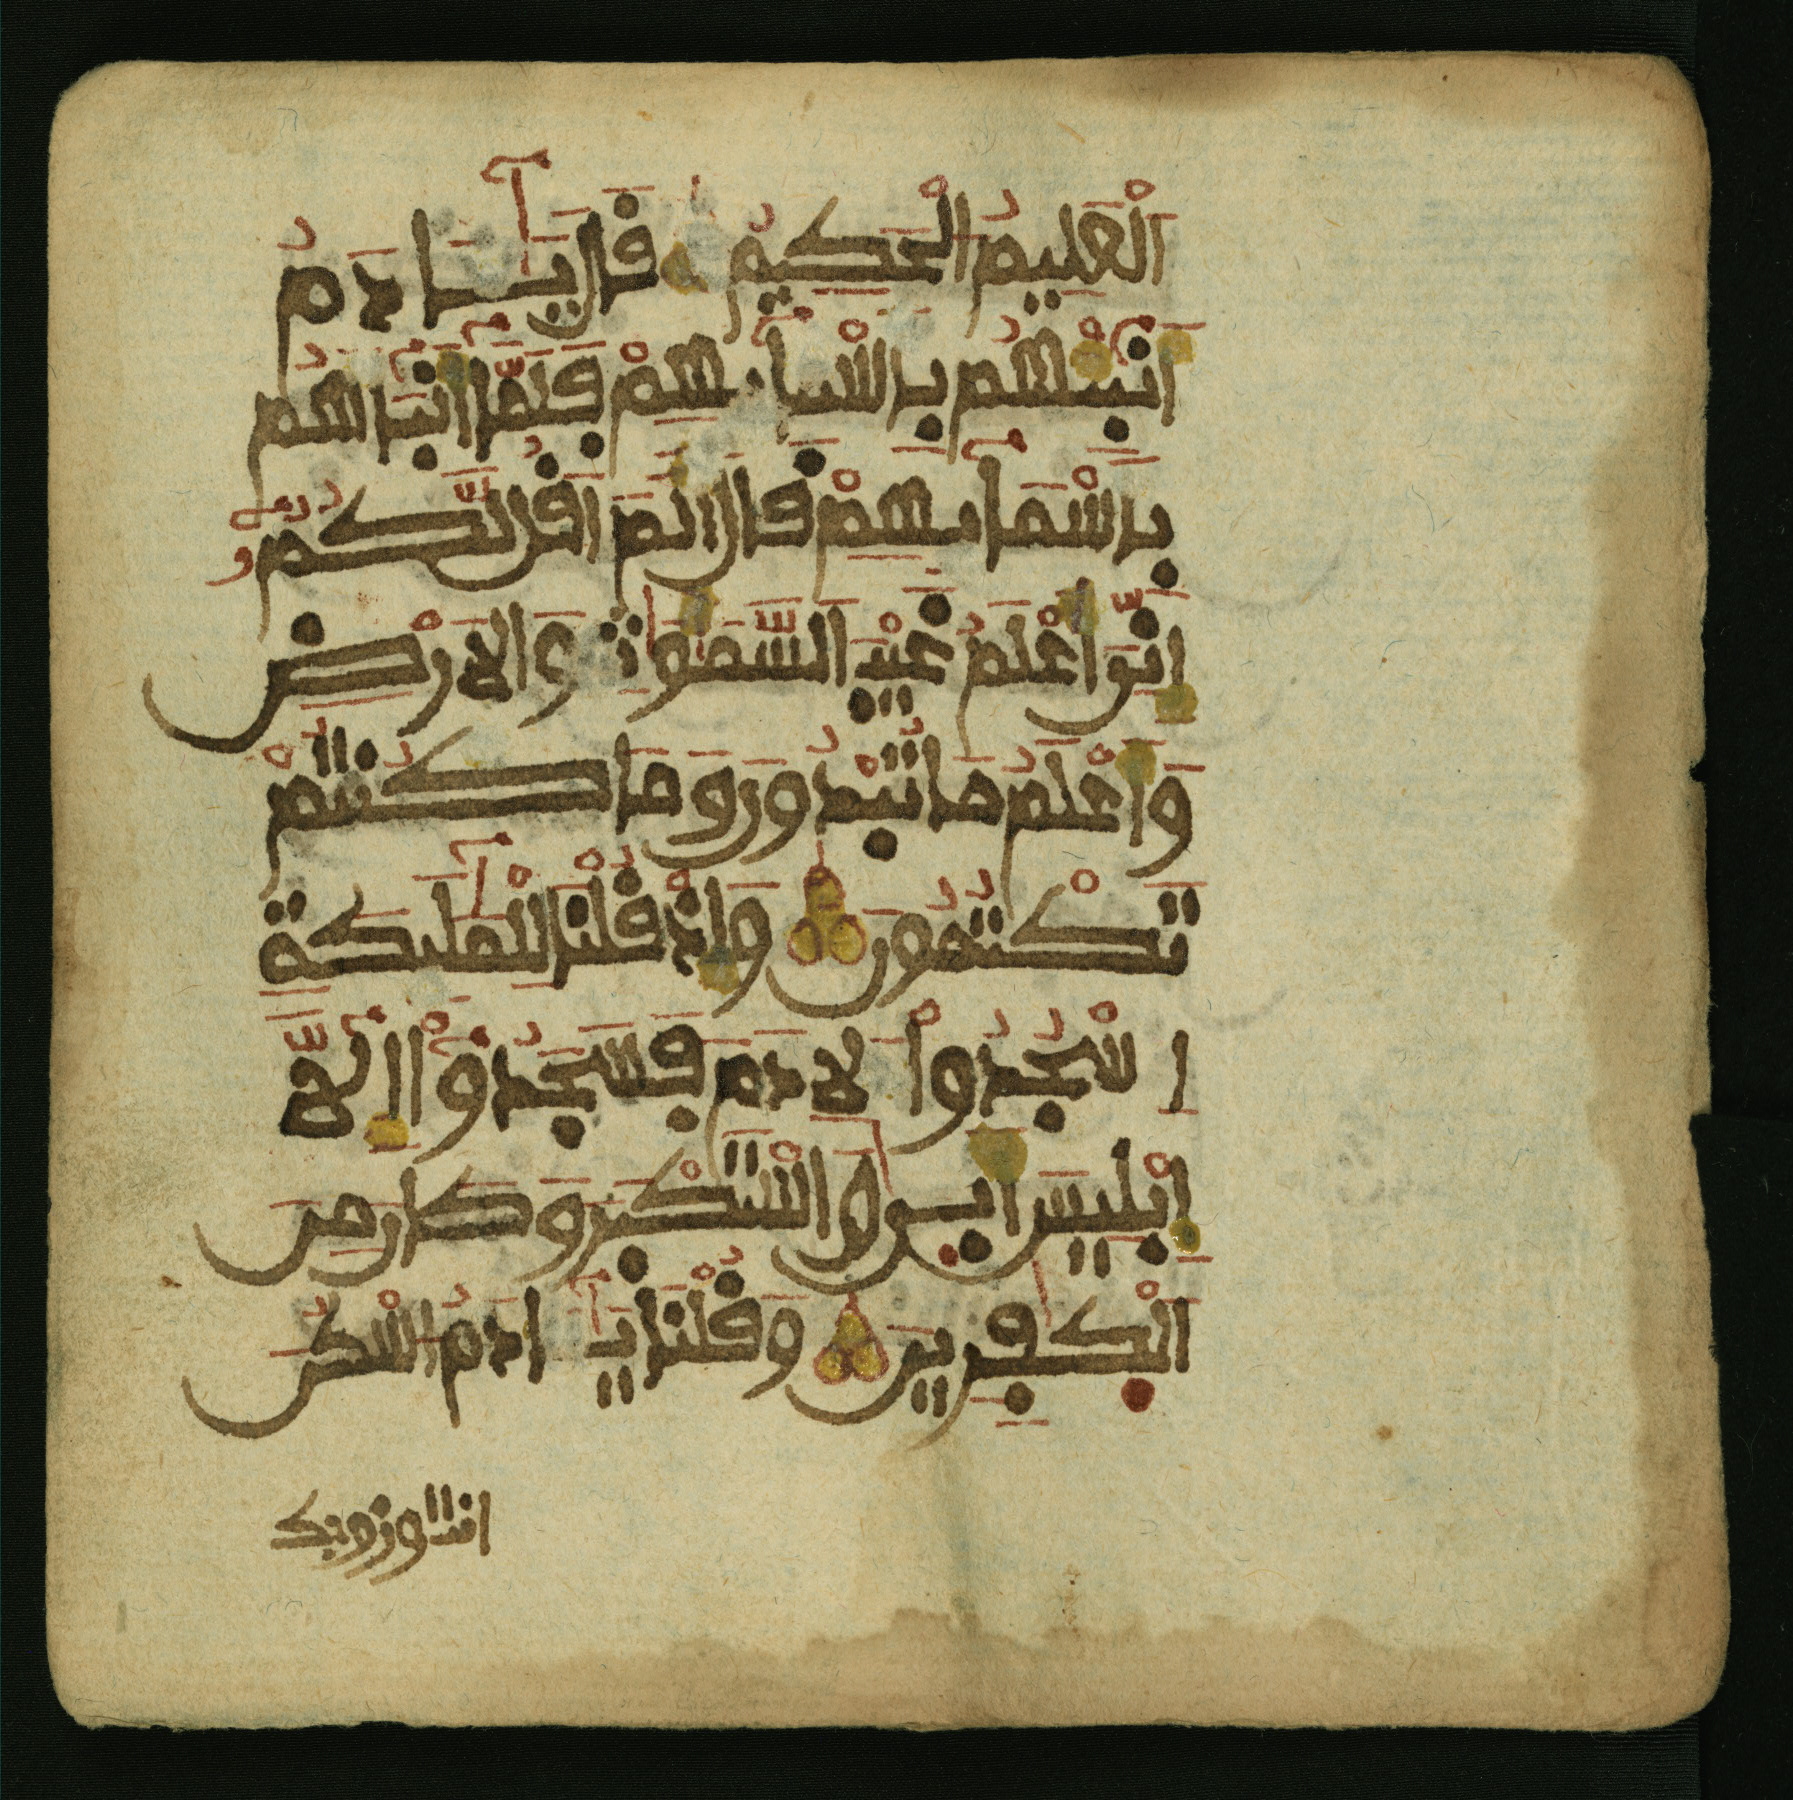 الْعَلِيمُ الْحَكِيمُ قَالَ يَـٰٓـَٔادَمُ
أَنۢبِئْهُم بِأَسْمَآئِهِمْ فَلَمَّآ أَنۢبَأَهُم
بِأَسْمَآئِهِمْ قَالَ أَلَمْ أَقُل لَّكُمُۥٓ
إِنِّىَ أَعْلَمُ غَيْبَ السَّمَٰوَٰتِ وَالْأَرْضِ
وَأَعْلَمُ مَا تُبْدُونَ وَمَا كُنتُمْ
تَكْتُمُونَ وَإِذْ قُلْنَا لِلْمَلَٰٓئِكَةِ
اسْجُدُواْ لِأَدَمَ فَسَجَدُوٓاْ إِلَّآ
إِبْلِيسَ أَبَىٰ وَاسْتَكْبَرَ وَكَانَ مِنَ
الْكَٰفِرِينَ وَقُلْنَا يَـٰٓـَٔادَمُ اسْكُنْ
انت وزوجك